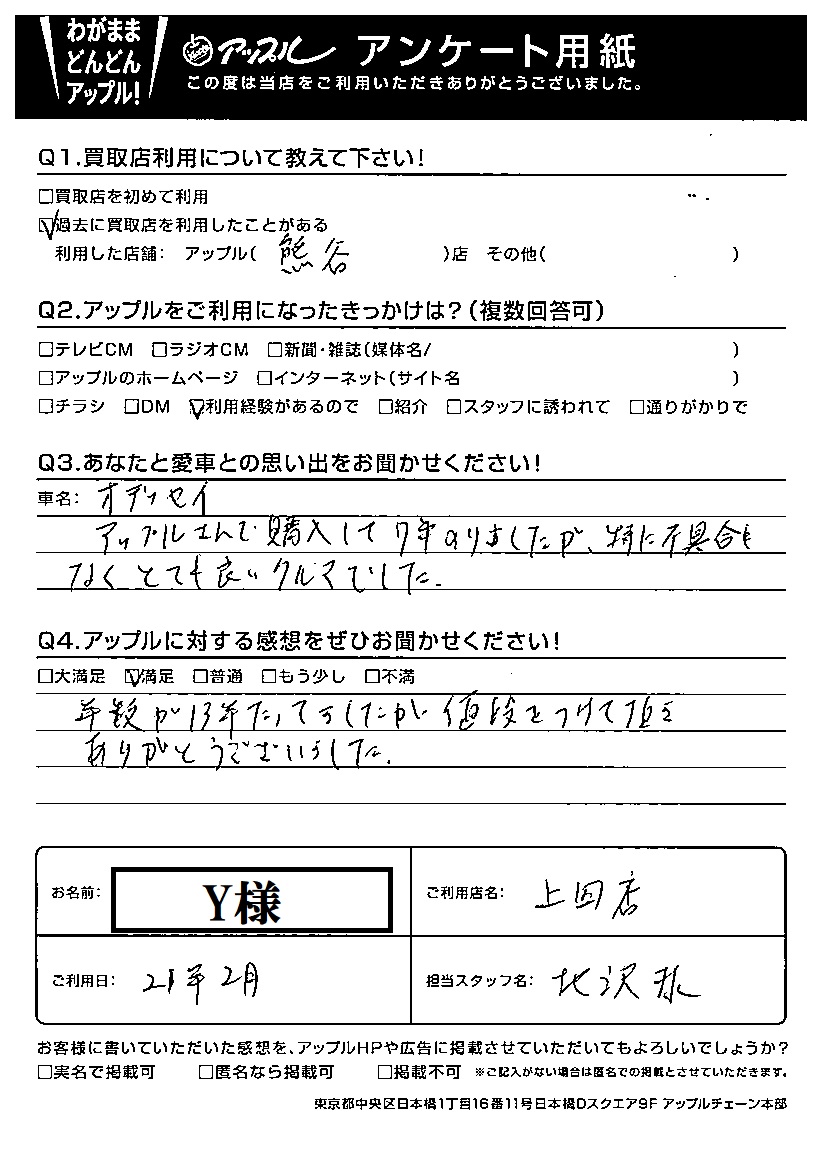 わがまま
どんどん
アップル!
アップル アンケート用紙
この度は当店をご利用いただきありがとうございました。
Q1.買取店利用について教えて下さい!
□買取店を初めて利用
☑過去に買取店を利用したことがある
利用した店舗: アップル( 熊谷 )店 その他( )
Q2.アップルをご利用になったきっかけは?(複数回答可)
□テレビCM □ラジオCM □新聞・雑誌(媒体名/ )
□アップルのホームページ □インターネット(サイト名 )
□チラシ □DM ☑利用経験があるので □紹介 □スタッフに誘われて □通りがかりで
Q3.あなたと愛車との思い出をお聞かせください!
車名: オデッセイ
アップルさんで購入して7年のりましたが、特に不具合も
なくとても良いクルマでした.
Q4.アップルに対する感想をぜひお聞かせください!
□大満足 ☑満足 □普通 □もう少し □不満
年数が13年たってましたが値段をつけて頂き
ありがとうございました.
お名前: Y様
ご利用店名: 上田店
ご利用日: 21年2月
担当スタッフ名: 北沢様
お客様に書いていただいた感想を、アップルHPや広告に掲載させていただいてもよろしいでしょうか?
□実名で掲載可 □匿名なら掲載可 □掲載不可 ※ご記入がない場合は匿名での掲載とさせていただきます。
東京都中央区日本橋1丁目16番11号日本橋Dスクエア9F アップルチェーン本部